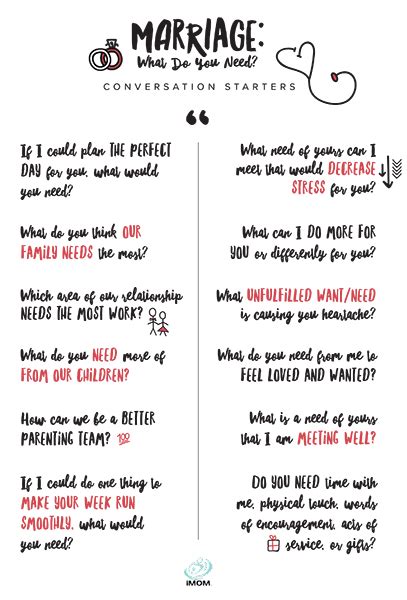 MARRIAGE:
What Do You Need?
CONVERSATION STARTERS
“
If I could plan THE PERFECT
DAY for you, what would
you need?
What do you think OUR
FAMILY NEEDS the most?
Which area of our relationship
NEEDS THE MOST WORK?
What do you NEED more of
FROM OUR CHILDREN?
How can we be a BETTER
PARENTING TEAM? 100
If I could do one thing to
MAKE YOUR WEEK RUN
SMOOTHLY, what would
you need?
What need of yours can I
meet that would DECREASE
STRESS for you?
What can I DO MORE FOR
YOU or differently for you?
What UNFULFILLED WANT/NEED
is causing you heartache?
What do you need from me to
FEEL LOVED AND WANTED?
What is a need of yours
that I am MEETING WELL?
DO YOU NEED time with
me, physical touch, words
of encouragement, acts of
service, or gifts?
iMOM